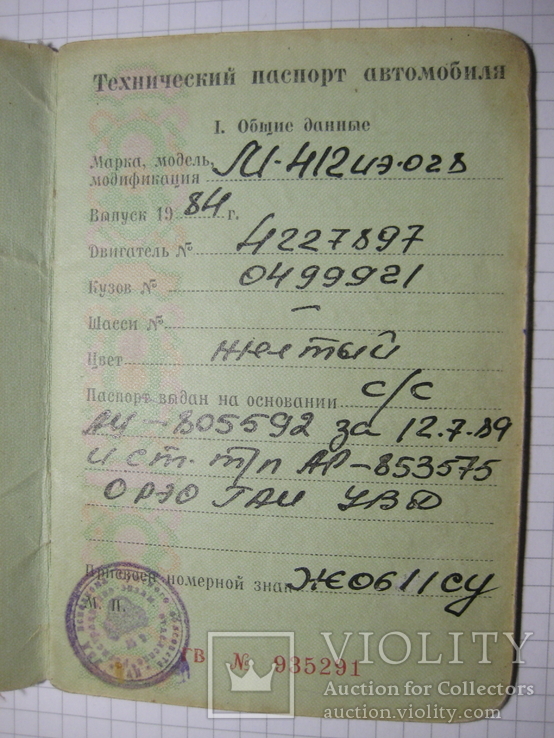 Технический паспорт автомобиля
I. Общие данные
Марка, модель, М-412иэ-028
модификация
Выпуск 1984 г.
Двигатель № 4227897
Кузов № 0499921
Шасси № —
Цвет желтый
Паспорт выдан на основании с/с
АУ-805592 за 12.7.89
и ст. т/п АР-853575
ОРЭО ГАИ УВД
Присвоен номерной знак Ж0611СУ
М. П.
ГВ № 935291
VIOLITY
Auction for Collectors
auction.violity.com